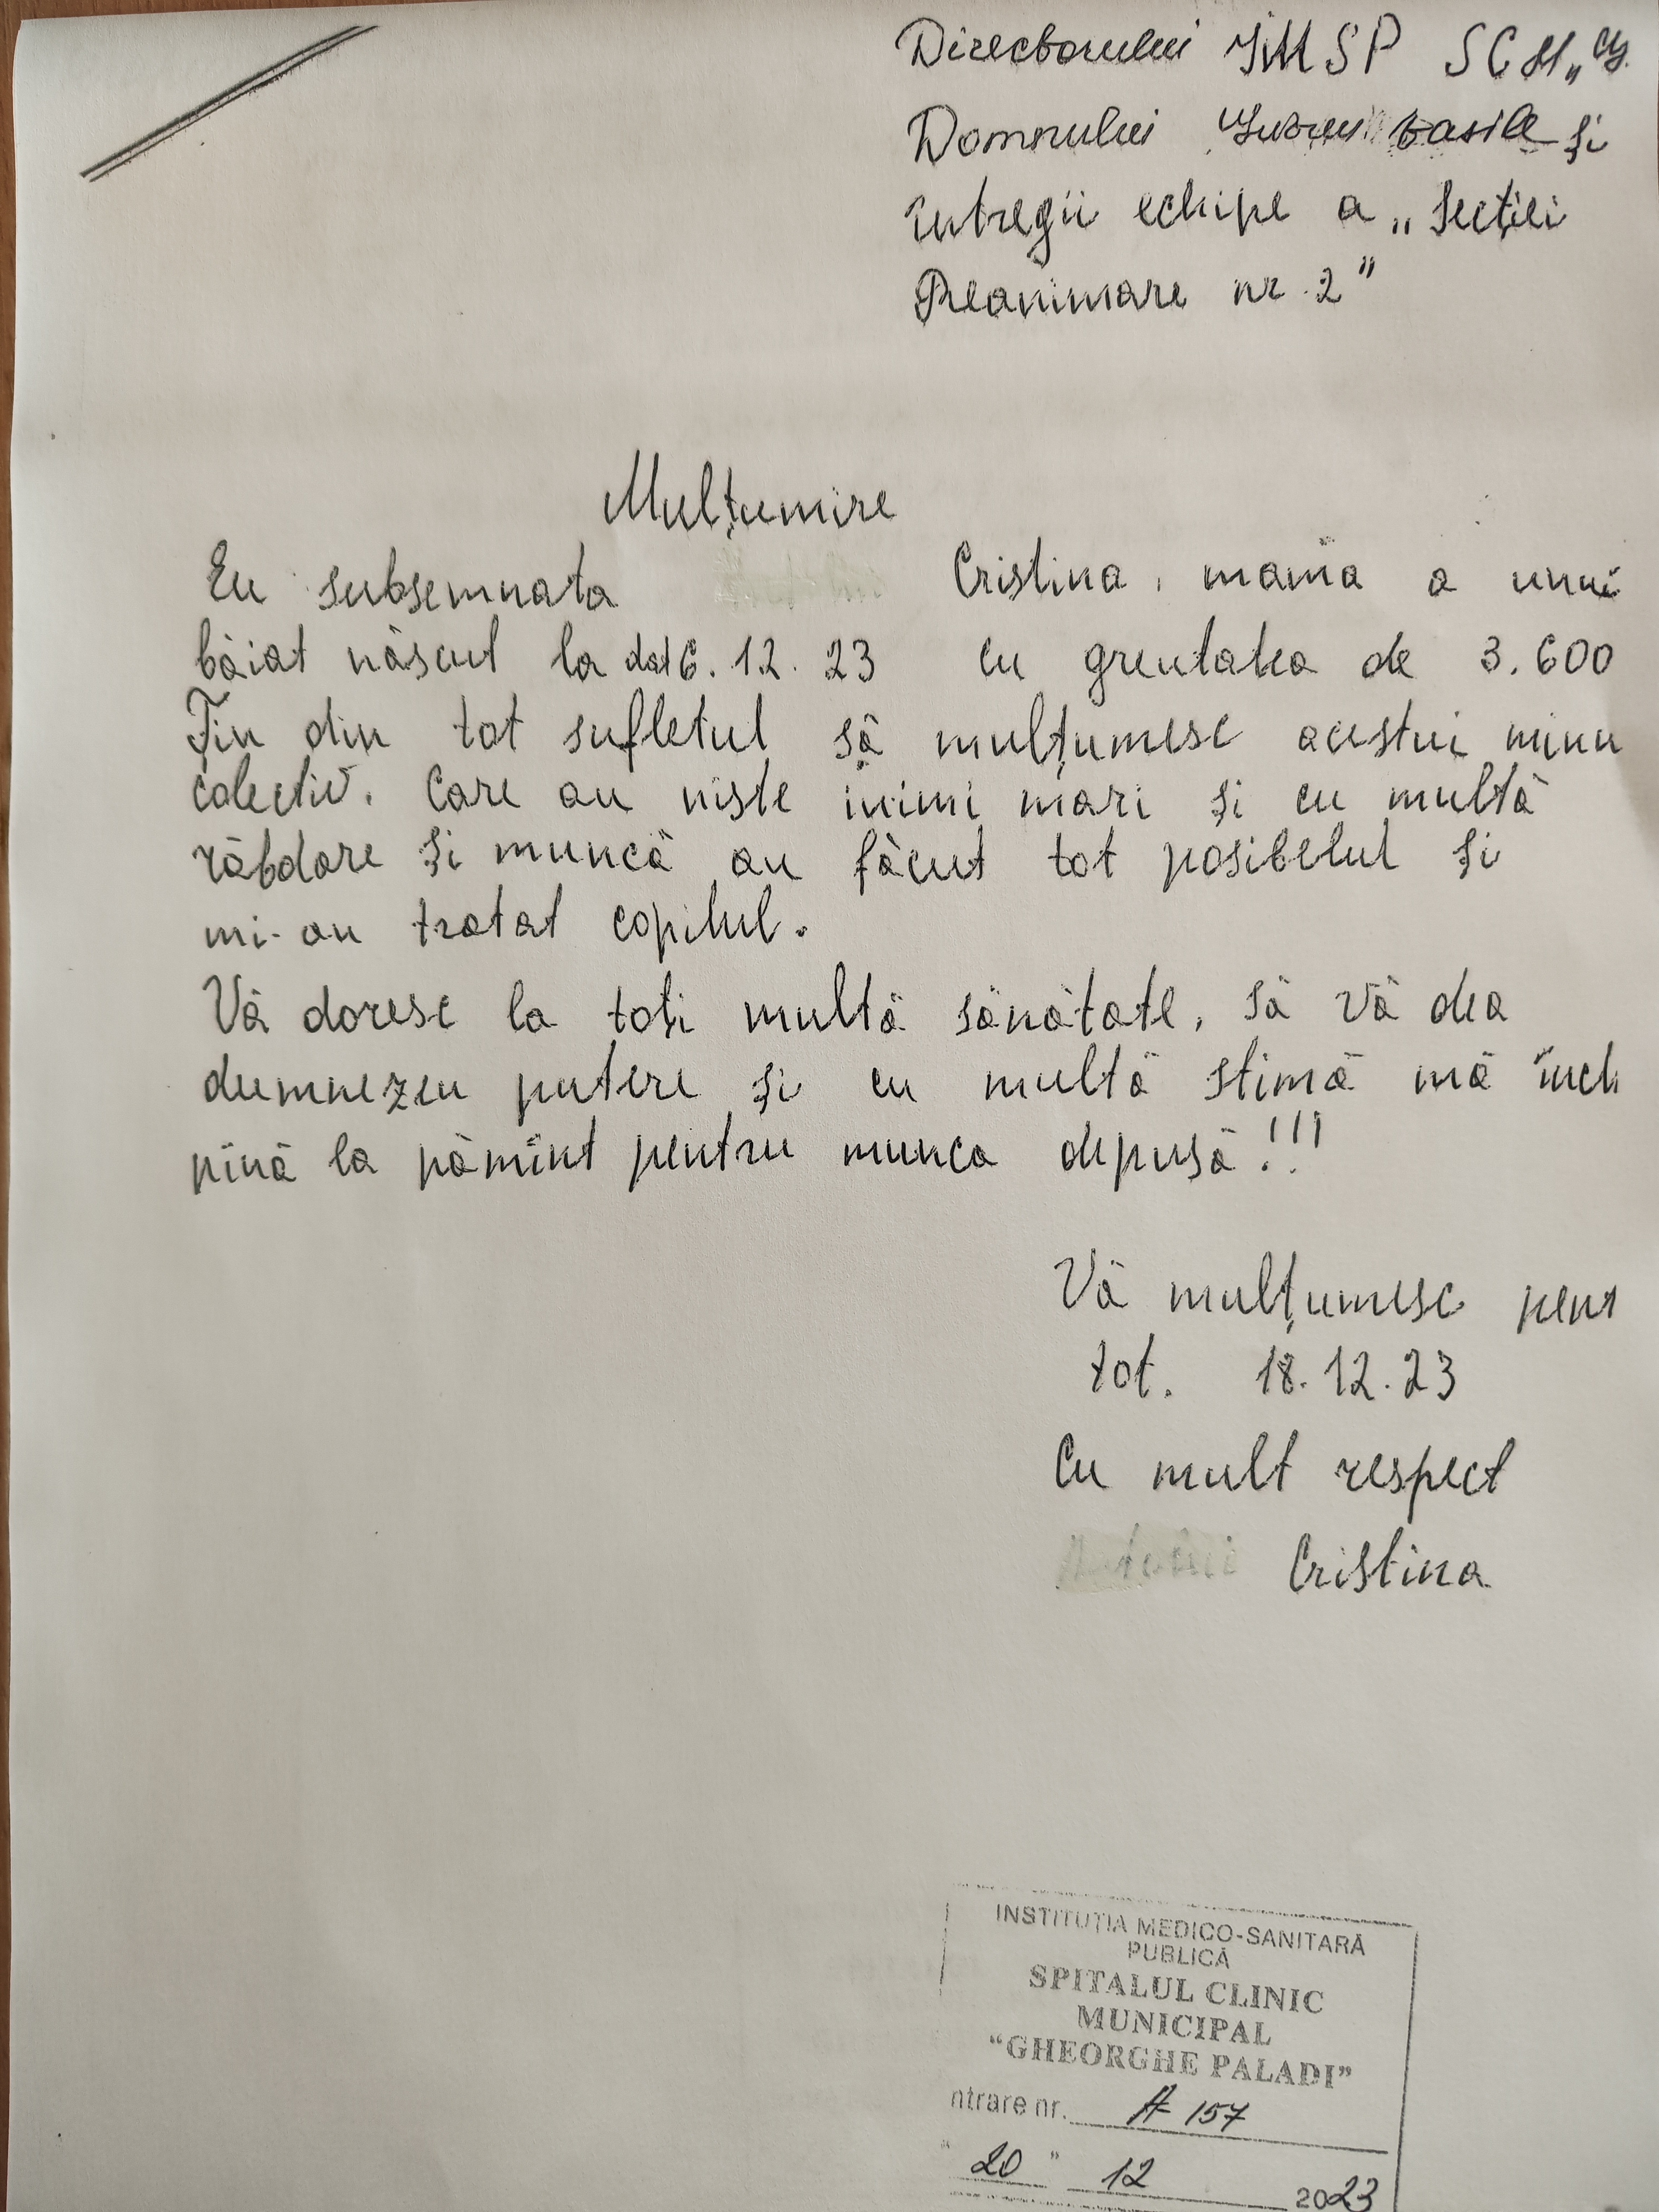 Directorului IMSP SCM „G.
Domnului vasile și
întregii echipe a „Secției
Reanimare nr. 2”
Mulțumire
Eu subsemnata Cristina, mama a unui
băiat născut la dat 6. 12. 23 cu greutatea de 3.600
Țin din tot sufletul să mulțumesc acestui minu
colectiv. Care au niste inimi mari și cu multă
răbdare și muncă au făcut tot posibelul și
mi-au tratat copilul.
Vă doresc la toți multă sănătate, să vă dea
dumnezeu putere și cu multă stimă mă încl
pină la pămînt pentru munca depusă!!!
Vă mulțumesc pent
tot. 18.12.23
Cu mult respect
Cristina
INSTITUȚIA MEDICO-SANITARĂ
PUBLICĂ
SPITALUL CLINIC
MUNICIPAL
“GHEORGHE PALADI”
ntrare nr. A 157
“ 20 ” 12 2023